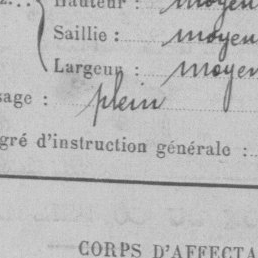 z... Hauteur : moyen
Saillie : moyen
Largeur : moyen
sage : plein
gré d'instruction générale :
CORPS D'AFFECTA